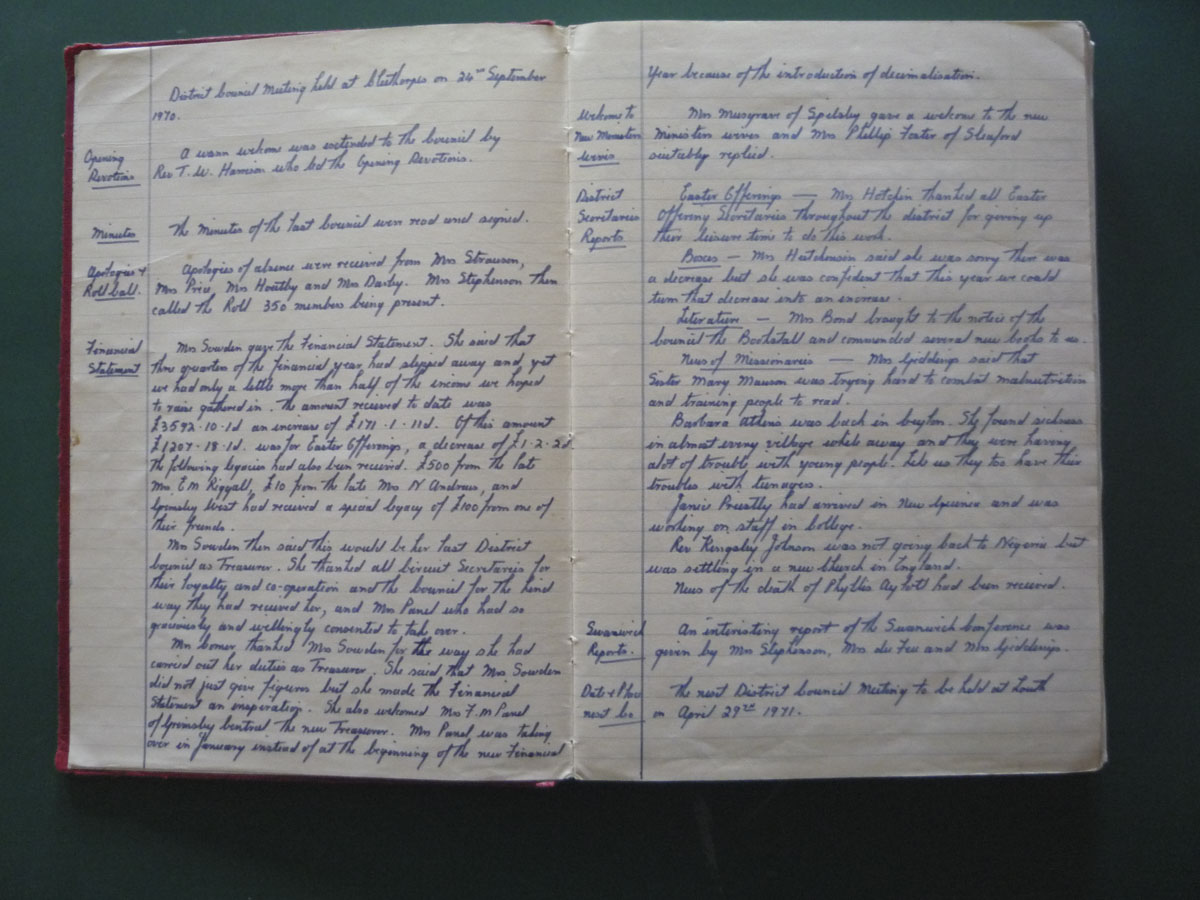 District Council Meeting held at Cleethorpes on 24th September
1970.
Opening
Devotions
A warm welcome was extended to the Council by
Rev T. W. Harrison who led the Opening Devotions.
Minutes
The Minutes of the last Council were read and signed.
Apologies +
Roll Call.
Apologies of absence were received from Mrs Strawson,
Mrs Price Mrs Houltby and Mrs Darby. Mrs Stephenson then
called the Roll 350 members being present.
Financial
Statement
Mrs Sowden gave the Financial Statement. She said that
three quarters of the financial year had slipped away and yet
we had only a little more than half of the income we hoped
to raise gathered in. The amount received to date was
£3592-10-1d an increase of £171-1-11d. Of this amount
£1207-18-1d. was for Easter Offerings, a decrease of £1-2-2d
The following legacies had also been received. £500 from the late
Mrs E M Riggall, £10 from the late Mrs N Andrews, and
Grimsby West had received a special legacy of £100 from one of
their friends.
Mrs Sowden then said this would be her last District
Council as Treasurer. She thanked all Circuit Secretaries for
their loyalty and co-operation and the Council for the kind
way they had received her, and Mrs Panel who had so
graciously and willingly consented to take over.
Mrs Comer thanked Mrs Sowden for the way she had
carried out her duties as Treasurer. She said that Mrs Sowden
did not just give figures but she made the Financial
Statement an inspiration. She also welcomed Mrs F. M Panel
of Grimsby Central the new Treasurer. Mrs Panel was taking
over in January instead of at the beginning of the new Financial
Year because of the introduction of decimalisation.
Welcome to
New Ministers
Wives
Mrs Musgrave of Spilsby gave a welcome to the new
Ministers wives and Mrs Phillip Foster of Sleaford
suitably replied.
District
Secretaries
Reports
Easter Offerings — Mrs Hotchin thanked all Easter
Offering Secretaries throughout the district for giving up
their leisure time to do this work.
Boxes — Mrs Hutchinson said she was sorry there was
a decrease but she was confident that this year we could
turn that decrease into an increase.
Literature — Mrs Bond brought to the notice of the
Council the Bookstall and commended several new books to us.
News of Missionaries — Mrs Giddings said that
Sister Mary Mawson was trying hard to combat malnutrition
and training people to read.
Barbara Atkins was back in Ceylon. She found sickness
in almost every village while away and they were having
alot of trouble with young people. Like us they too have their
troubles with teenagers.
Janice Priestly had arrived in New Guinea and was
working on staff in College.
Rev Kingsley Johnson was not going back to Nigeria but
was settling in a new Church in England.
News of the death of Phyllis Ayskott had been received.
Swanwick
Reports.
An interesting report of the Swanwick Conference was
given by Mrs Stephenson, Mrs du Feu and Mrs Giddings.
Date + Place
next Co.
The next District Council Meeting to be held at Louth
on April 29th 1971.